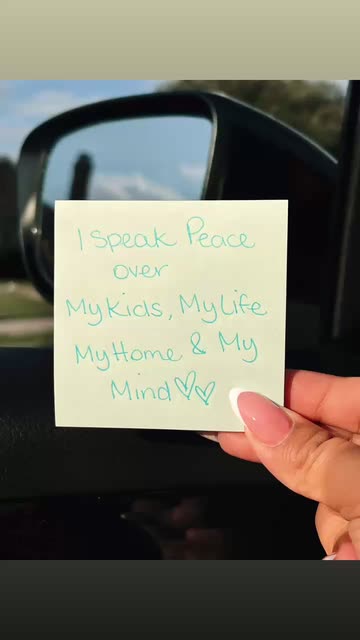 I Speak Peace
over
My Kids, My Life
My Home & My
Mind♡♡